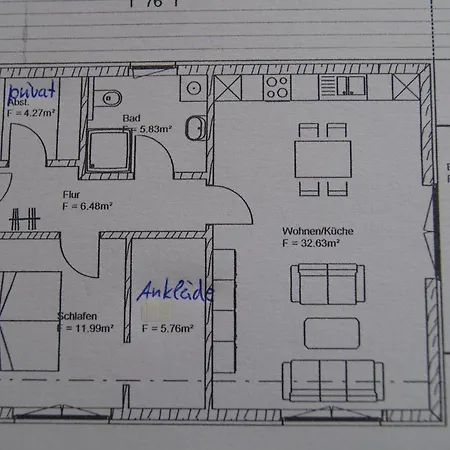 privat
Abst.
F = 4.27m²
Bad
F = 5.83m²
Flur
F = 6.48m²
Wohnen/Küche
F = 32.63m²
Schlafen
F = 11.99m²
Ankleide
F = 5.76m²